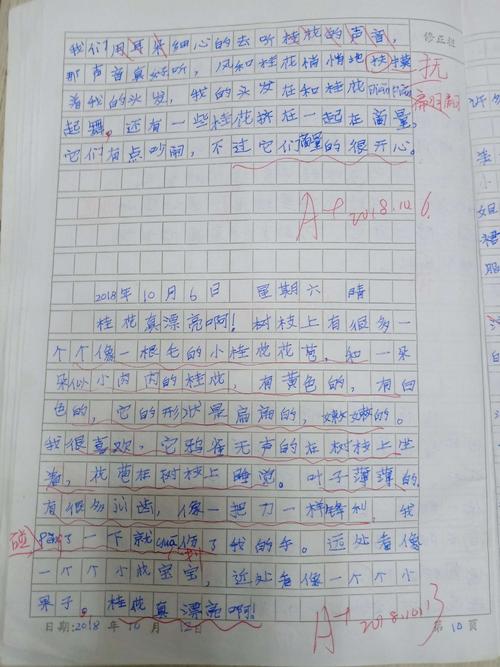 我们用耳朵细心的去听桂花的声音，
修正栏
那声音真好听，风和桂花悄悄地扶摸
抚
着我的头发，我的头发在和桂花piān piān
翩翩
起舞。还有一些桂花挤在一起在商量，
它们有点吵闹，不过它们商量的很开心。
A+ 2018.10.6.
2018年10月6日 星期六 晴
桂花真漂亮啊！树枝上有很多一
个个像一根毛的小桂花花苞，和一朵
朵似小肉肉的桂花，有黄色的，有白
色的，它的形状是扁扁的，嫩嫩的。
我很喜欢，它鸦雀无声的在树枝上坐
着，花苞在树枝上睡觉。叶子薄薄的
有很多小齿，像一把刀一样锋利，我
碰
了一下就cuā伤了我的手。远处看像
一个个小战宝宝，近处看像一个个小
果子。桂花真漂亮啊！
A+ 2018.10.13
日期:2018年10月12日
第10页